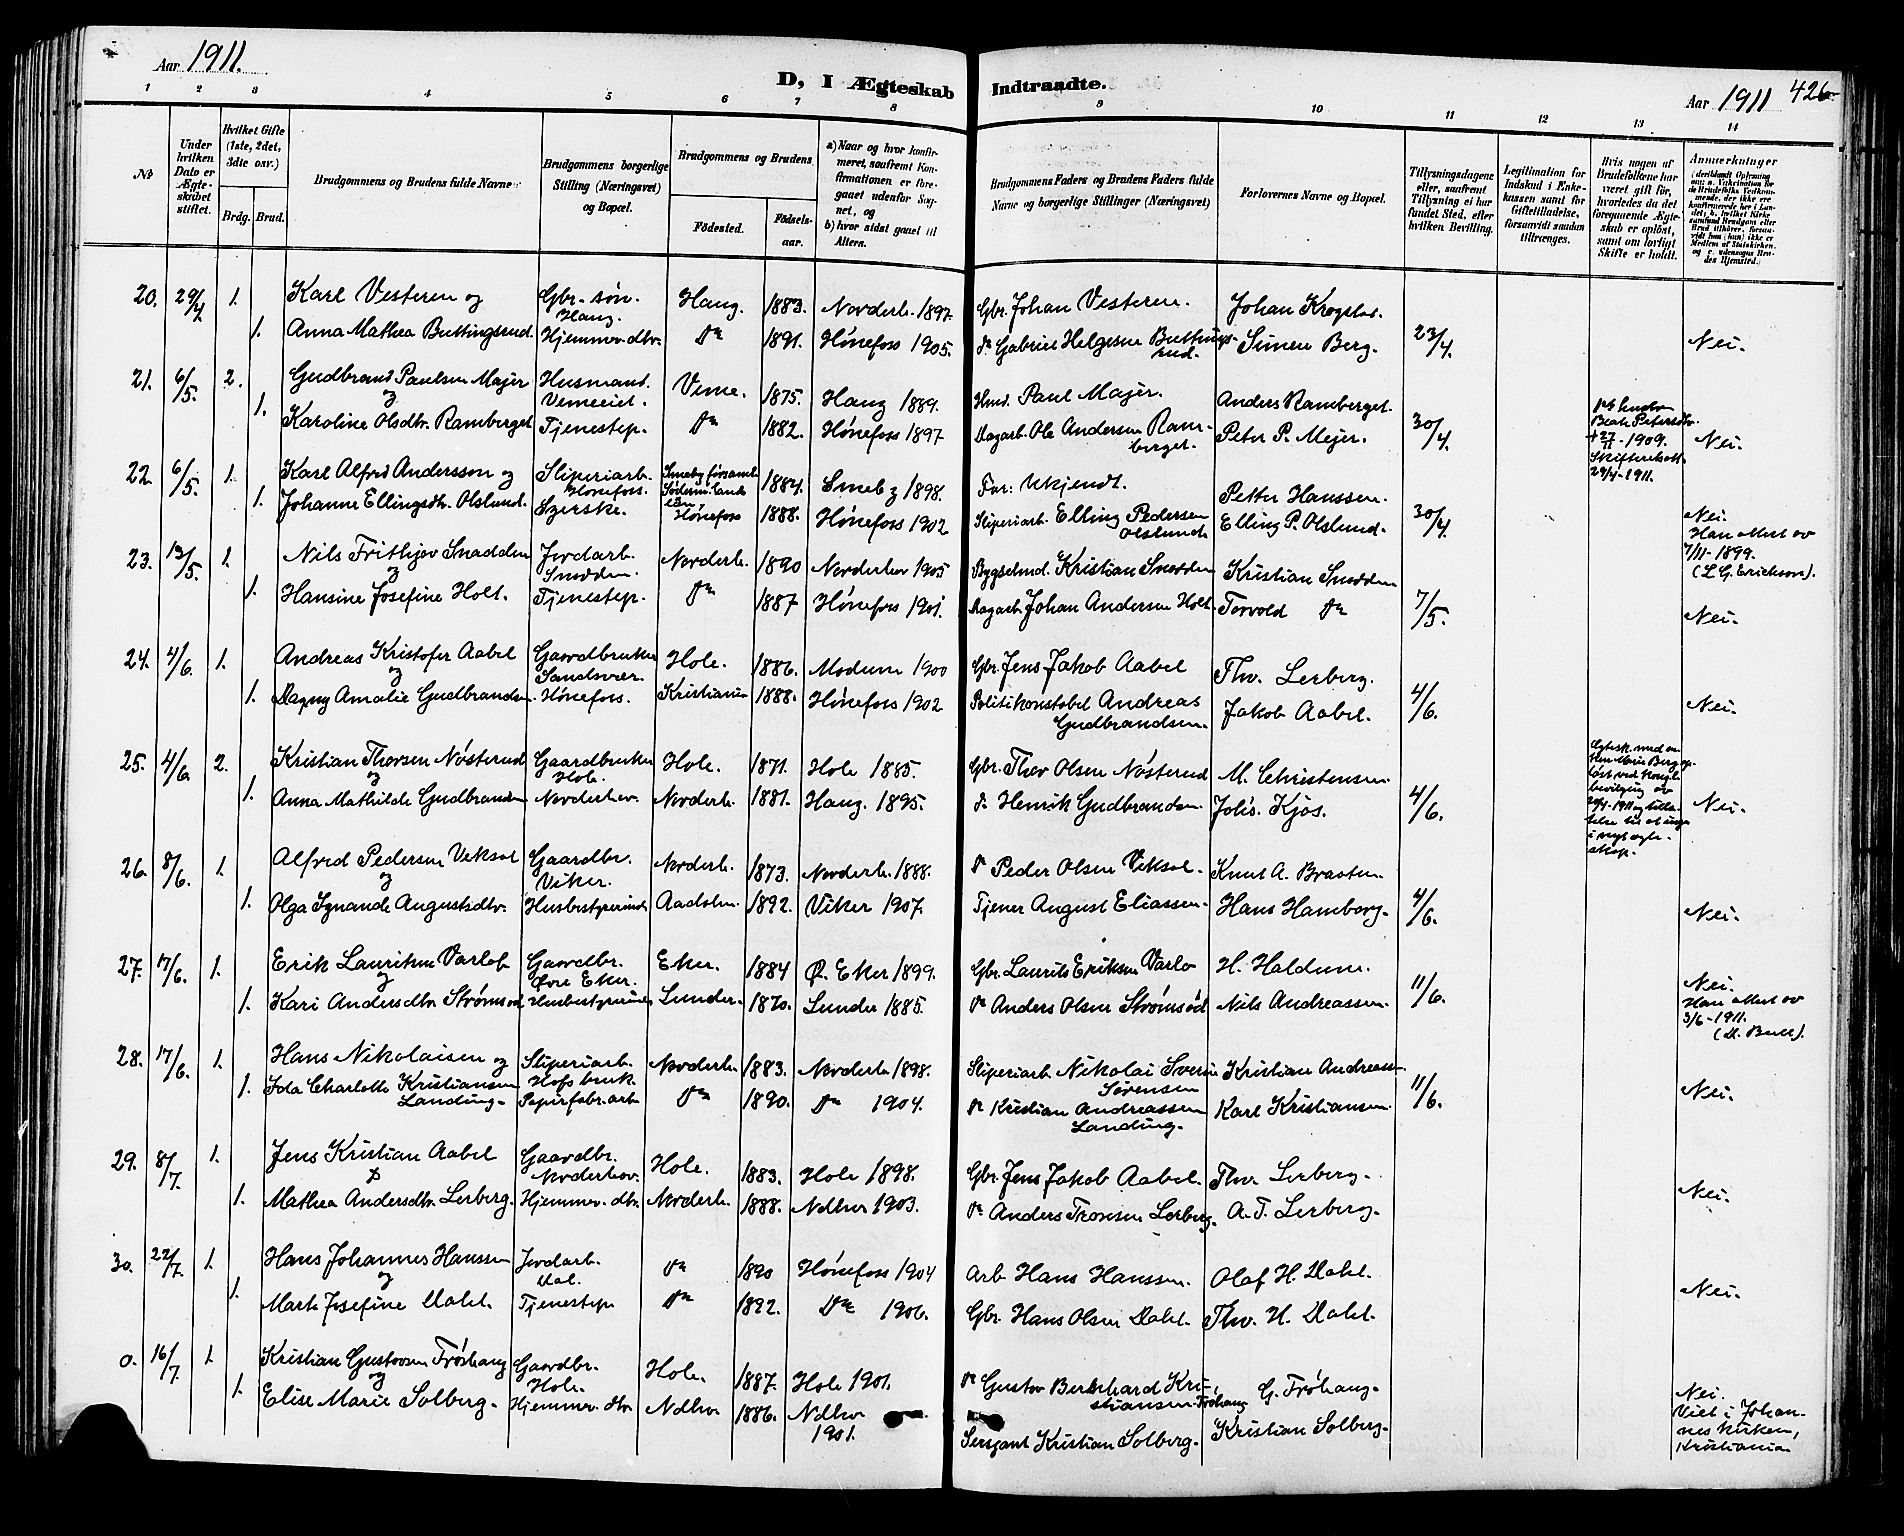 Aar 1911.
D, I Ægteskab Indtraadte.
Aar 1911 426
1 2 3 4 5 6 7 8 9 10 11 12 13 14
No
Under hvilken Dato er Ægteskabet stiftet.
Hvilket Gifte (1ste, 2det, 3dte osv.)
Brdg. Brud.
Brudgommens og Brudens fulde Navne
Brudgommens borgerlige Stilling (Næringsvei) og Bopæl.
Brudgommens og Brudens
Fødested.
Fødselsaar.
a) Naar og hvor konfirmeret, saafremt Konfirmationen er foregaaet udenfor Sognet, og
b) hvor sidst gaaet til Alters.
Brudgommens Faders og Brudens Faders fulde Navne og borgerlige Stillinger (Næringsvei)
Forlovernes Navne og Bopæl.
Tillysningsdagene eller, saafremt Tillysning ei har fundet Sted, efter hvilken Bevilling.
Legitimation for Indskud i Enkekassen samt for Giftetilladelse, forsaavidt saadan tiltrænges.
Hvis nogen af Brudefolkene har været gift før, hvorledes da det foregaaende Ægteskab er opløst, samt om lovligt Skifte er holdt.
Anmærkninger
20. 29/4 1. Karl Vesteren og Gbr.-søn. Haug. Haug. 1883. Norderh. 1897. Gbr. Johan Vesteren. Johan Krogstad.
1. Anna Mathea Buttingsrud. Hjemmev. dtr. do 1891. Hønefoss 1905. do Gabriel Helgesen Buttingsrud. Simen Berg. 23/4. Nei.
21. 6/5. 2. Gudbrand Paulsen Majer og Husmand. Vemeeiet. Veme. 1875. Haug 1889. Hmd. Paul Majer. Anders Ramberget.
1. Karoline Olsdtr. Ramberget Tjenestep. do 1882. Hønefoss 1897 Dagarb. Ole Andersen Ramberget. Peter P. Mejer. 30/4. Beate Petersdtr. 1909. 29/4-1911. Nei.
22. 6/5. 1. Karl Alfred Andersson og Sliperiarb. Hønefoss. Smeby 1884. Smeby 1898. Far: Ukjendt. Petter Hanssen.
1. Johanne Ellingsdtr. Olslund. Syerske. Hønefoss 1888. Hønefoss 1902 Sliperiarb. Elling Pedersen Olslund. Elling P. Olslund. 30/4. Nei. Han attest av 7/11-1899. (L. G. Erickson).
23. 13/5. 1. Nils Frithjov Snadden og Jordarb. Snodden. Norderh. 1890 Norderhov 1905 Bygselmd. Kristian Snodden Kristian Snodden
1. Hansine Josefine Holt. Tjenestep. do 1887 Hønefoss 1901. Dagarb. Johan Andersen Holt. Torvold do 7/5. Nei.
24. 4/6. 1. Andreas Kristofer Aabel og Gaardbruker Sandsvær. Hole. 1886. Modum 1900 Gbr. Jens Jakob Aabel Thv. Lerberg.
1. Dagny Amalie Gudbrandsen Hønefoss. Kristiania 1888. Hønefoss 1902 Politikonstabel Andreas Gudbrandsen. Jakob Aabel. 4/6. Nei.
25. 4/6. 2. Kristian Thorsen Nøsterud og Gaardbruker Hole. Hole. 1871. Hole 1885. Gbr. Thor Olsen Nøsterud M. Christensen.
1. Anna Mathilde Gudbrandsen Norderhov. Norderh. 1881. Haug. 1895. do Henrik Gudbrandsen. Johs. Kjos. 4/6. Nei.
26. 8/6. 1. Alfred Pedersen Veksal og Gaardbr. Viker. Norderh. 1873. Norderh. 1888. do Peder Olsen Veksal. Knut A. Braaten.
1. Olga Synande Augustsdtr. Husbestyrerinde Aadalen. 1892. Viker 1907. Tjener August Eliassen. Hans Hamborg. 4/6. Nei.
27. 17/6. 1. Erik Lauritsen Varlo og Gaardbr. Øvre Eker. Eker. 1884 Ø. Eker 1899. Gbr. Laurits Eriksen Varlo H. Haldum.
1. Kari Andersdtr. Strømsød Husbestyrerinde Lunder. 1870. Lunder 1885. do Anders Olsen Strømsød Nils Andreassen. 11/6. Nei. Han attest av 3/6-1911.
28. 17/6. 1. Hans Nikolaisen og Sliperiarb. Hofsbruk Norderh. 1883. Norderh. 1898. Sliperiarb. Nikolai Sverin Sørensen Kristian Andreassen
1. Ida Charlotte Kristiansen Landing. Papirfabr.arb. do 1890. do 1904. do Kristian Andreassen Landing. Karl Kristiansen. 11/6. Nei.
29. 8/7. 1. Jens Kristian Aabel & Gaardbr. Norderhov. Hole. 1883. Hole 1898. Gbr. Jens Jakob Aabel. Thv. Lerberg.
1. Mathea Andersdtr. Lerberg. Hjemmev. dtr. Norderh. 1888. Ndhov 1903. do Anders Tronsen Lerberg. A. T. Lerberg. Nei.
30. 22/7. 1. Hans Johannes Hanssen og Jordarb. do 1890 Hønefoss 1904 Arb. Hans Hanssen. Olaf H. Dahl.
1. Josefine Dahl. Tjenestep. do 1892. do 1906. Gbr. Hans Olsen Dahl. Thv. H. Dahl. Nei.
0. 16/7. 1. Kristian Gustavsen Frøshaug og Gaardbr. Hole. Hole. 1887. Hole 1901. do Gustav Bernhard Kristiansen Frøhaug G. Frøhaug.
1. Elise Marie Solberg. Hjemmev. dtr. Ndhov 1886. Ndhov 1901. Sersjant Kristian Solberg. Kristian Solberg. Nei. Viet i Johannes kirken, Kristiania